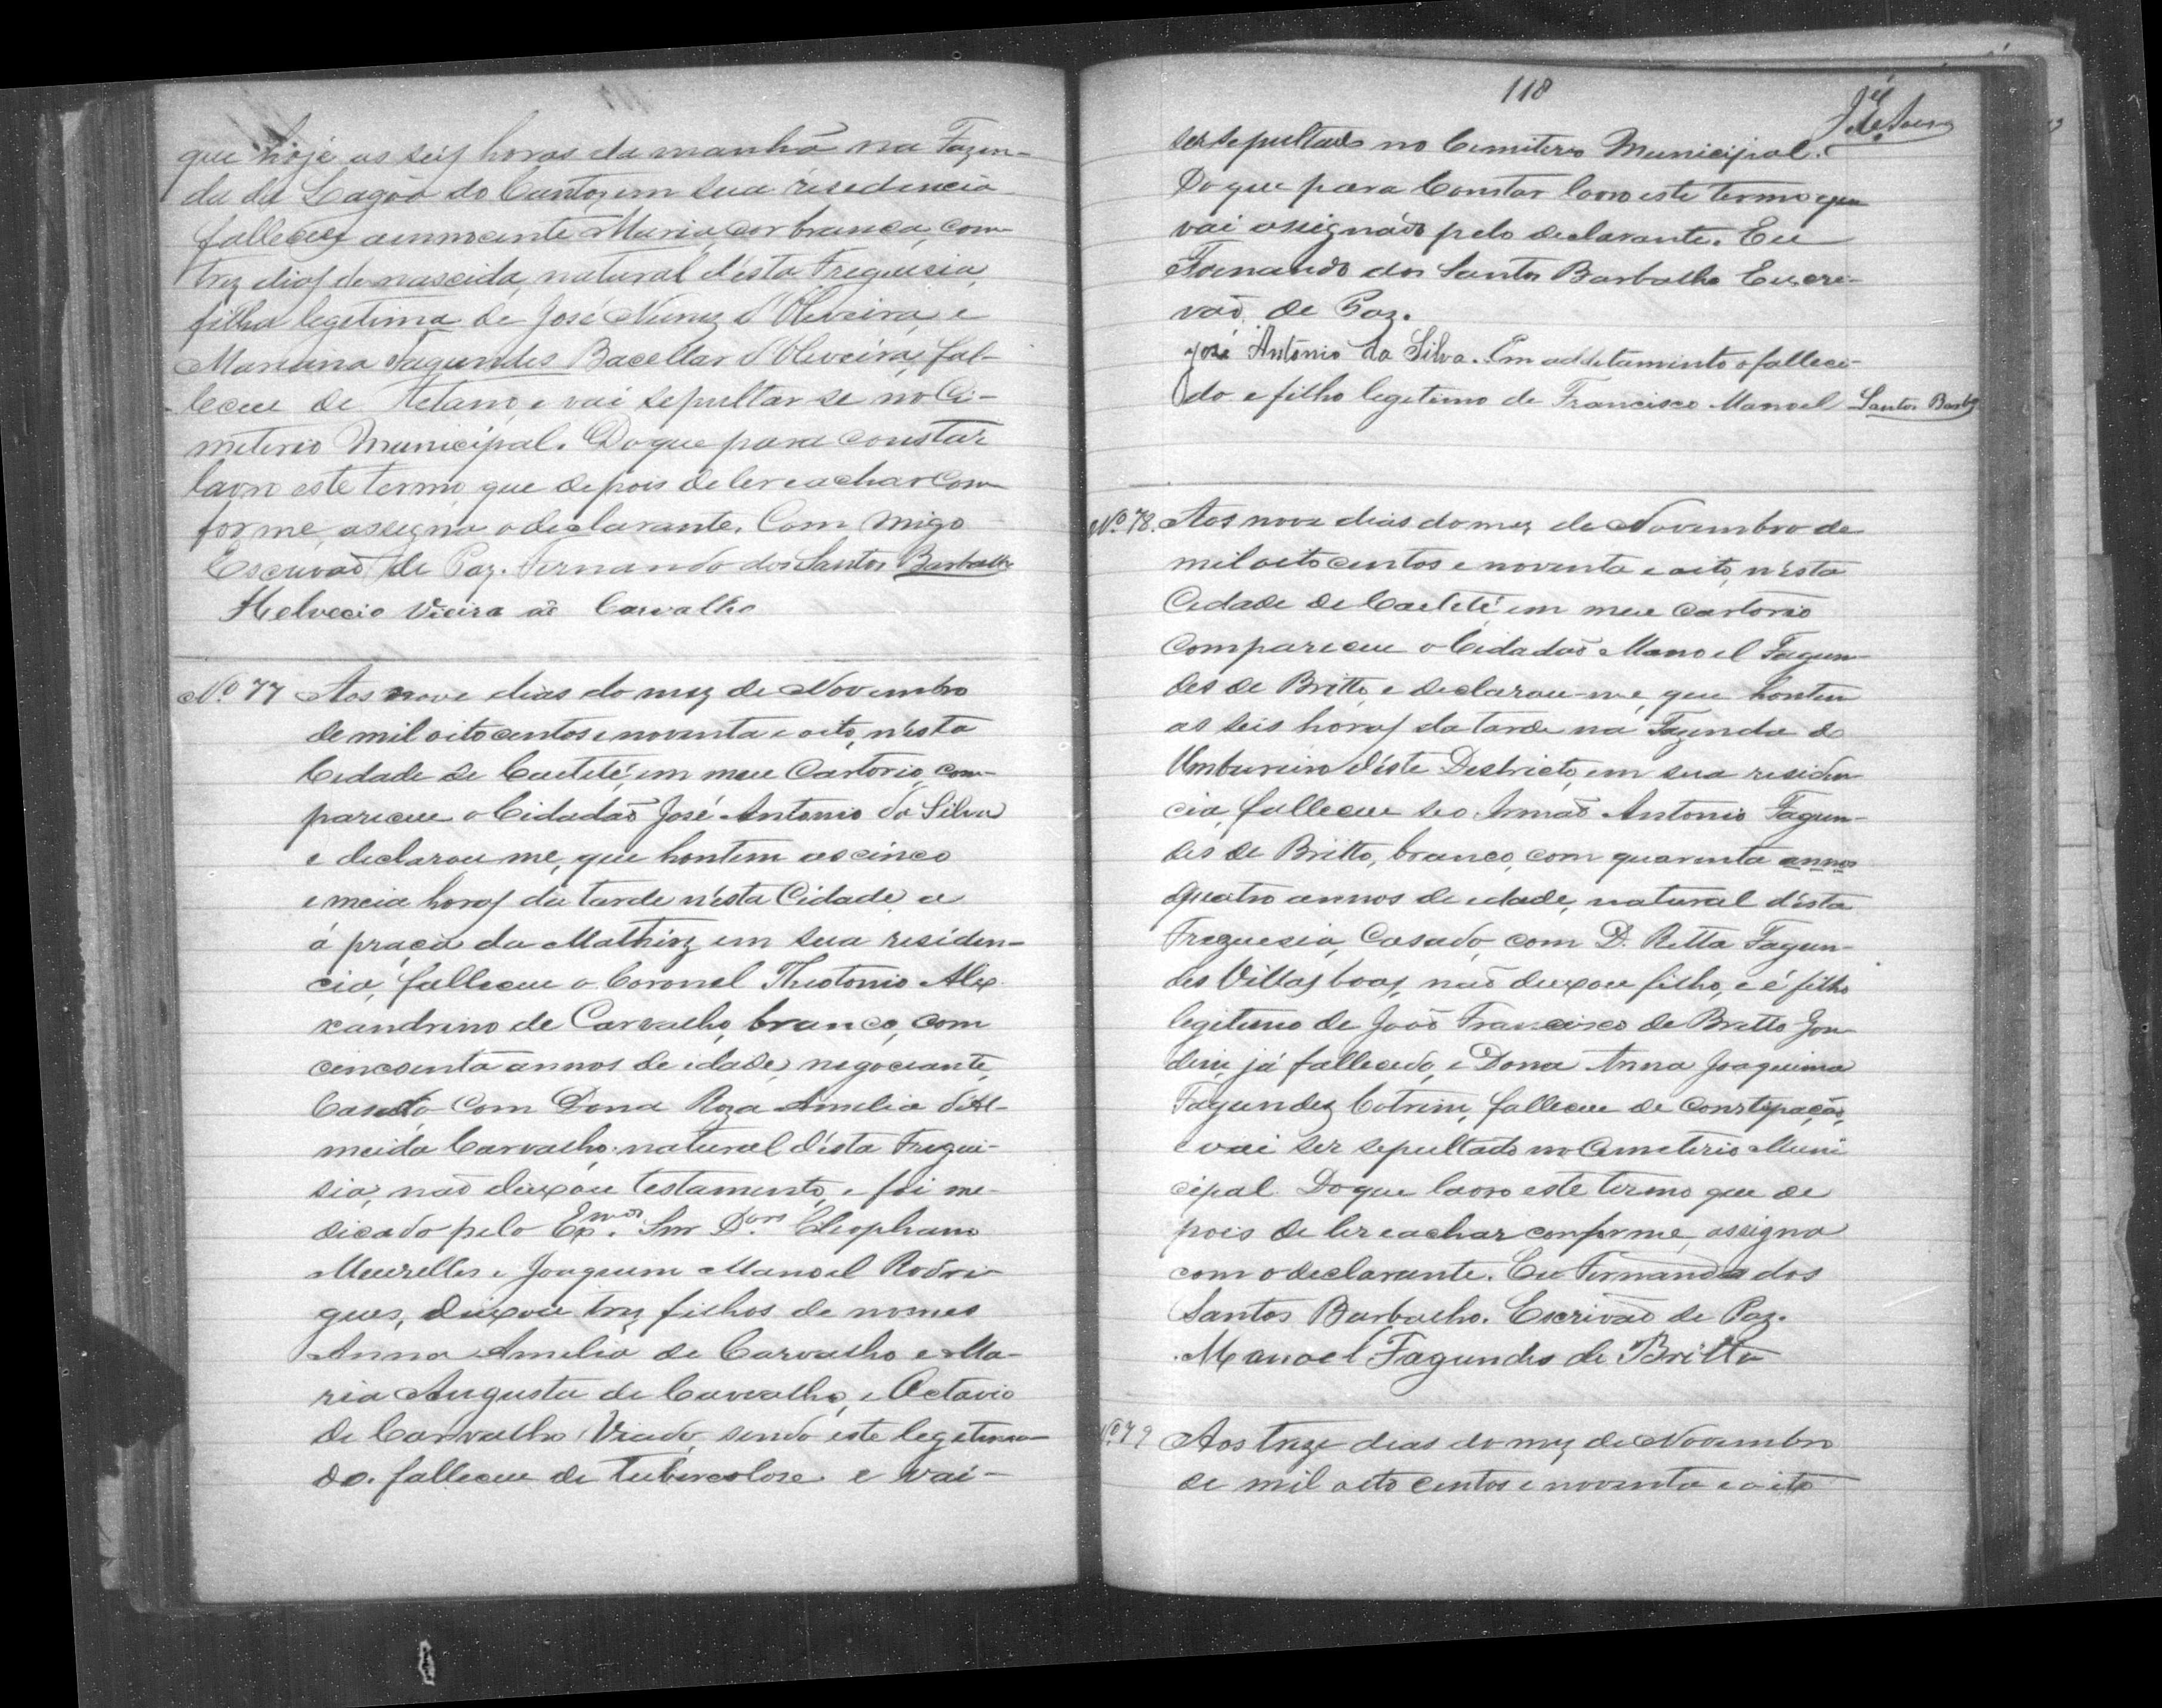 que hoje as seis horas da manhã na Fazen-
da da Lagôa do Canto, em sua residencia
falleceu a innocente Maria, cor branca, com
trez dias de nascida, natural d'esta Freguesia,
filha legitima de José Nunez d'Oliveira, e
Marianna Fagundes Bacellar d'Oliveira, fal-
leceu de Tetano, e vai sepultar-se no Ci-
miterio Municipal. Do que para constar
lavro este termo que depois de ler e achar con-
forme, assigna o declarante. Com migo
Escrivaõ de Paz. Fernando dos Santos Barbalho
Helvecio Vieira de Carvalho
Nº 77 Aos nove dias do mez de Novembro
de mil oitocentos e noventa e oito, n'esta
Cidade de Caeteté, em meu Cartorio, com-
pareceu o Cidadaõ José Antonio da Silva
e declarou me, que hontem as cinco
e meia horas da tarde n'esta Cidade a
á praça da Mathriz em sua residen-
cia, falleceu o Coronel Theotonio Alex
xandrino de Carvalho, branco, com
cincoenta annos de idade, negociante,
Casado com Dona Roza Amelia d'Al-
meida Carvalho, natural d'esta Fregui-
sia, naõ deixou testamento, e foi me-
dicado pelo Exmos. Snr Dors. Cleophano
Meirelles e Joaquim Manoel Rodri-
gues, deixou trez filhos de nomes
Anna Amelia de Carvalho e Ma-
ria Augusta de Carvalho, e Octavio
de Carvalho sendo este legitima-
do. falleceu de tuberculose e vai-
118
ser sepultado no Cimiterio Municipal.
Do que para Constar lavro este termo que
vai assignado pelo declarante. Eu
Fernando dos Santos Barbalho Escre-
vaõ de Paz.
José Antonio da Silva. Em additamento o falleci-
do e filho legitimo de Francisco Manoel Santos Barb
Nº 78. Aos nove dias do mez de Novembro de
mil oito centos e noventa e oito, n'esta
Cidade de Caeteté, em meu Cartorio
Compareceu o Cidadaõ Manoel Fagun-
des de Britto, e declarou-me, que hontem
as seis horas da tarde na Fazenda do
Umbureiro d'este Destricto, em sua residen-
cia, falleceu seo Irmaõ Antonio Fagun-
des de Britto, branco, com quarenta annos
quatro annos de idade, natural d'esta
Freguesia, Casado, com D. Ritta Fagun-
des Villasboas, naõ deixou filho, e é filho
legitimo de Joaõ Francisco de Britto Gon-
dim, já fallecido, e Dona Anna Joaquina
Fagundez Cotrim, falleceu de Constipação,
e vai ser sepultado no Cemeterio Muni
cipal. Do que lavro este termo que de
pois de ler e achar conforme, assigna
com o declarante. Eu Fernando dos
Santos Barbalho. Escrivaõ de Paz.
Manoel Fagundes de Britto
Nº 79 Aos treze dias do mez de Novembro
de mil oito centos e noventa e oito